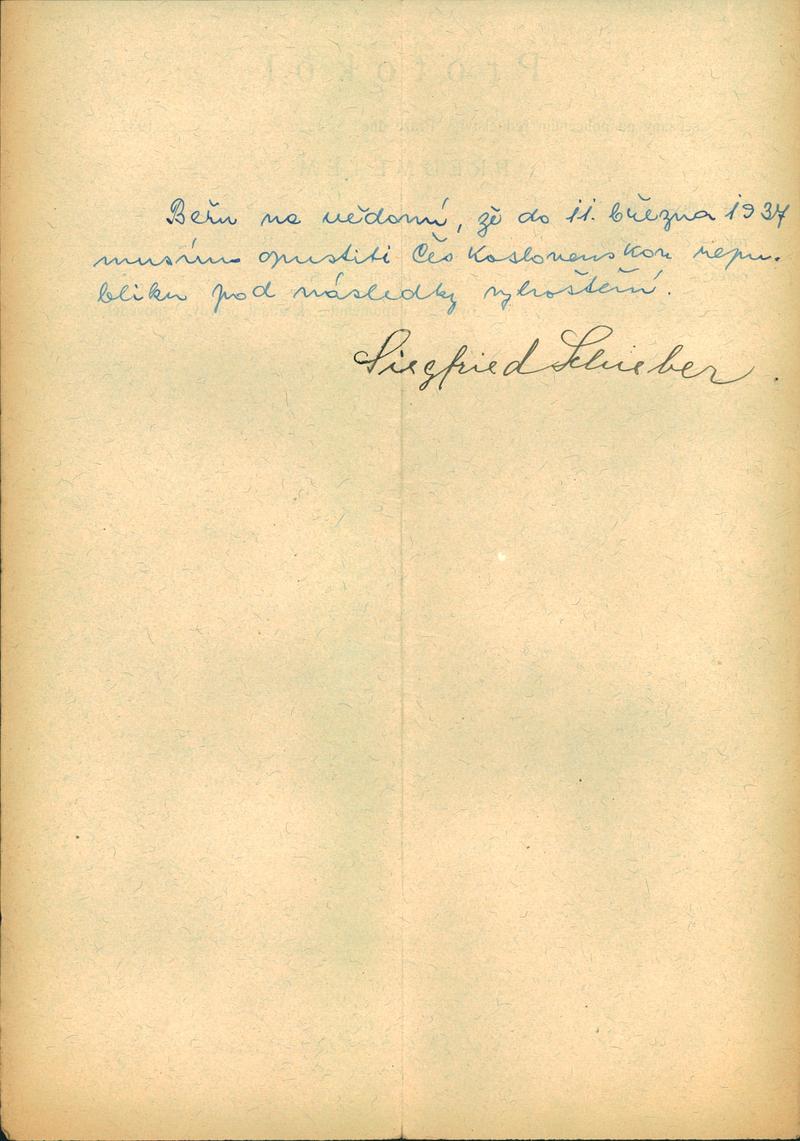 Beru na vědomí, že do 11. března 1937
musím opustiti Československou repu-
bliku pod následky vyhoštění.
Siegfried Schieber.